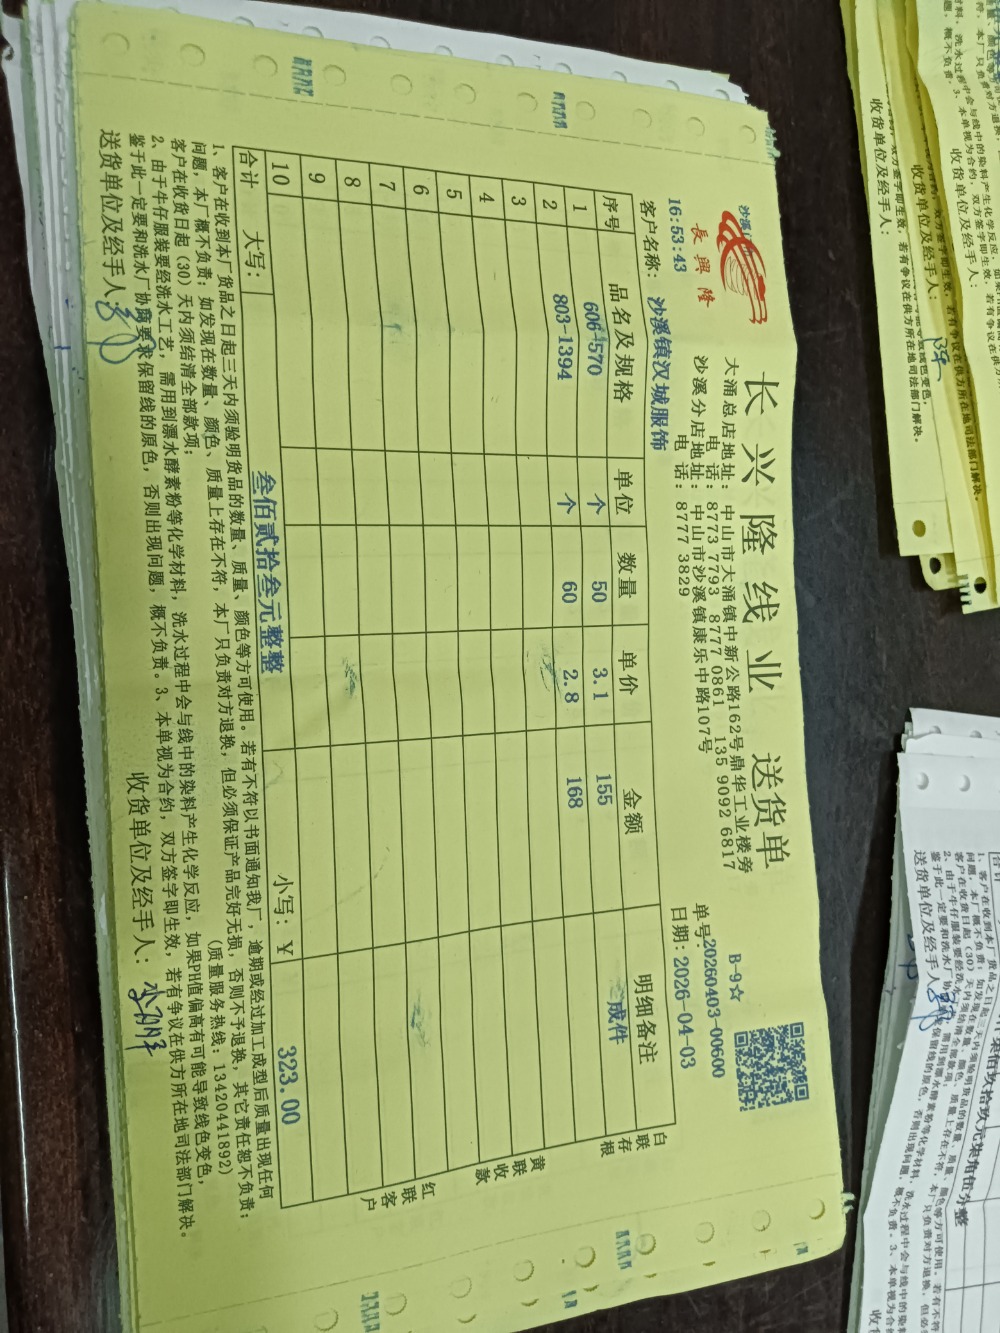 長興隆
长兴隆线业 送货单
大涌总店地址：中山市大涌镇中新公路162号鼎华工业楼旁
电 话：8773 7793 8777 0861 135 9092 6817
沙溪分店地址：中山市沙溪镇康乐中路107号
电 话：8777 3829
B-9☆
16:53:43
单号：20260403-00600
客户名称：沙溪镇汉城服饰
日期：2026-04-03
序号 品名及规格 单位 数量 单价 金额 明细备注
1 606-570 个 50 3.1 155 成件
2 803-1394 个 60 2.8 168
3
4
5
6
7
8
9
10
合计 大写：叁佰贰拾叁元整整 小写：￥ 323.00
白联存根
黄联收款
红联客户
1、客户在收到本厂货品之日起三天内须验明货品的数量、质量、颜色等方可使用。若有不符以书面通知我厂，逾期或经过加工成型后质量出现任何
问题，本厂概不负责；如发现在数量、颜色、质量上存在不符，本厂只负责对方退换，但必须保证产品完好无损，否则不予退换，其它责任恕不负责；
客户在收货日起（30）天内须结清全部款项；
（质量服务热线：13420441892）
2、由于牛仔服装要经洗水工艺，需用到漂水酵素粉等化学材料，洗水过程中会与线中的染料产生化学反应，如果PH值偏高有可能导致线色变色，
鉴于此一定要和洗水厂协商要求保留线的原色，否则出现问题，概不负责。3、本单视为合约，双方签字即生效，若有争议在供方所在地司法部门解决。
送货单位及经手人：
收货单位及经手人：
收货单位及经手人：
收货单位及经手人：
收货单位及经手人：
送货单位及经手人